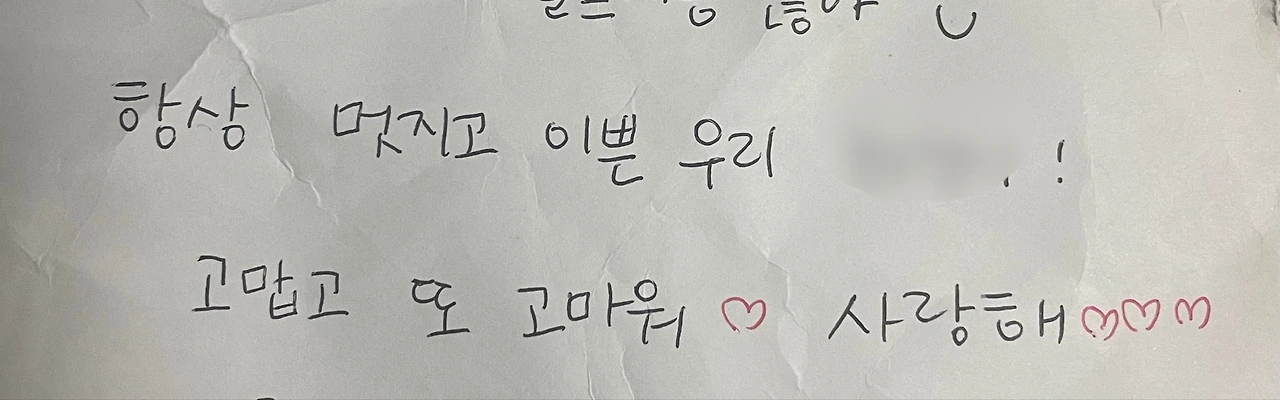 항상 멋지고 이쁜 우리 . !
고맙고 또 고마워 ♡ 사랑해 ♡♡♡